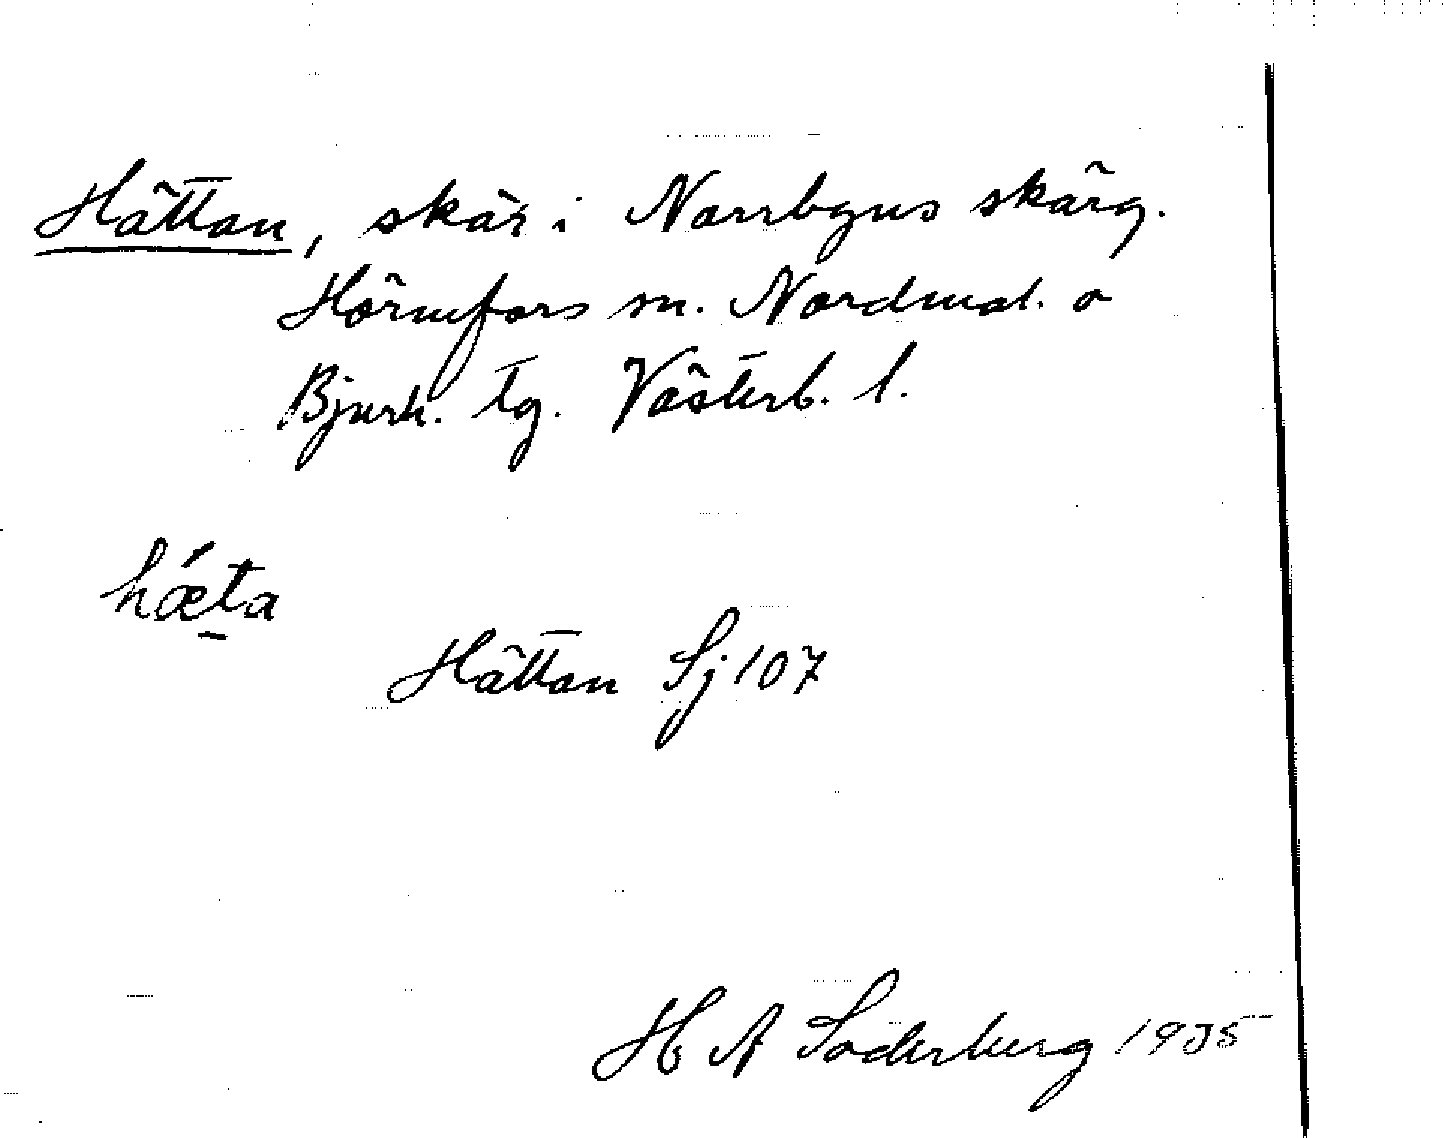 Hättan, skär i Norrbyns skärg.
Hörnefors sn. Nordmal. o
Bjurh. tg. Västerb. l.
hǽta
Hättan Sj 107
H A Söderberg 1935